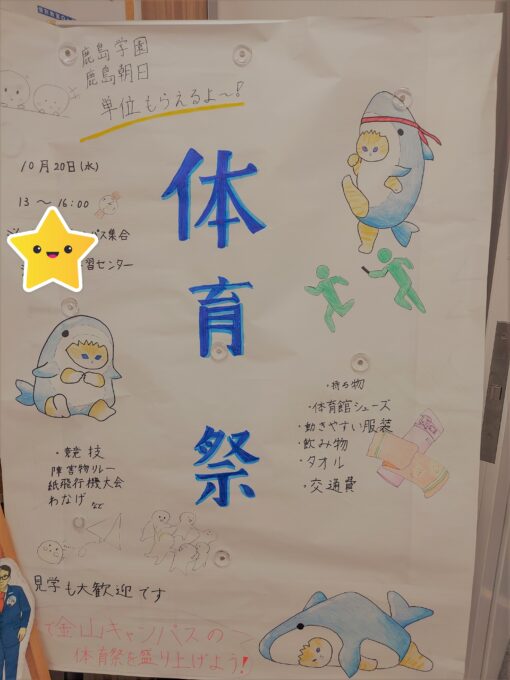 鹿島学園
鹿島朝日
単位もらえるよ〜!
10月20日(水)
13〜16:00
パス集合
習センター
体育祭
・持ち物
・体育館シューズ
・動きやすい服装
・飲み物
・タオル
・交通費
・競技
障害物リレー
紙飛行機大会
わなげ など
見学も大歓迎です
で金山キャンパスの
体育祭を盛り上げよう!